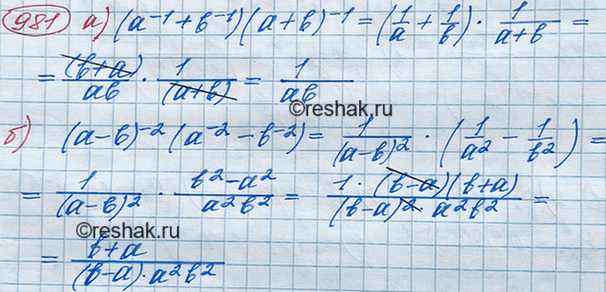 981 а) (a⁻¹+b⁻¹)(a+b)⁻¹ = (1/a + 1/b) · 1/(a+b) =
= (b+a)/ab · 1/(a+b) = 1/ab
©reshak.ru
б) (a−b)⁻² (a⁻²−b⁻²) = 1/(a−b)² · (1/a² − 1/b²) =
= 1/(a−b)² · (b²−a²)/a²b² = 1·(b−a)(b+a)/(b−a)² a²b² =
©reshak.ru
= b+a/(b−a)·a²b²